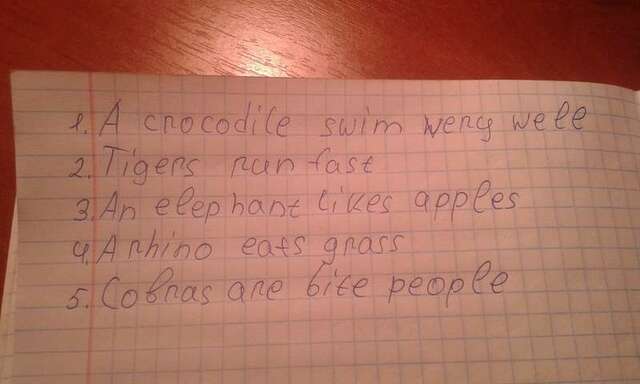 1. A crocodile swim wery well
2. Tigers run fast
3. An elephant likes apples
4. A rhino eats grass
5. Cobras are bite people